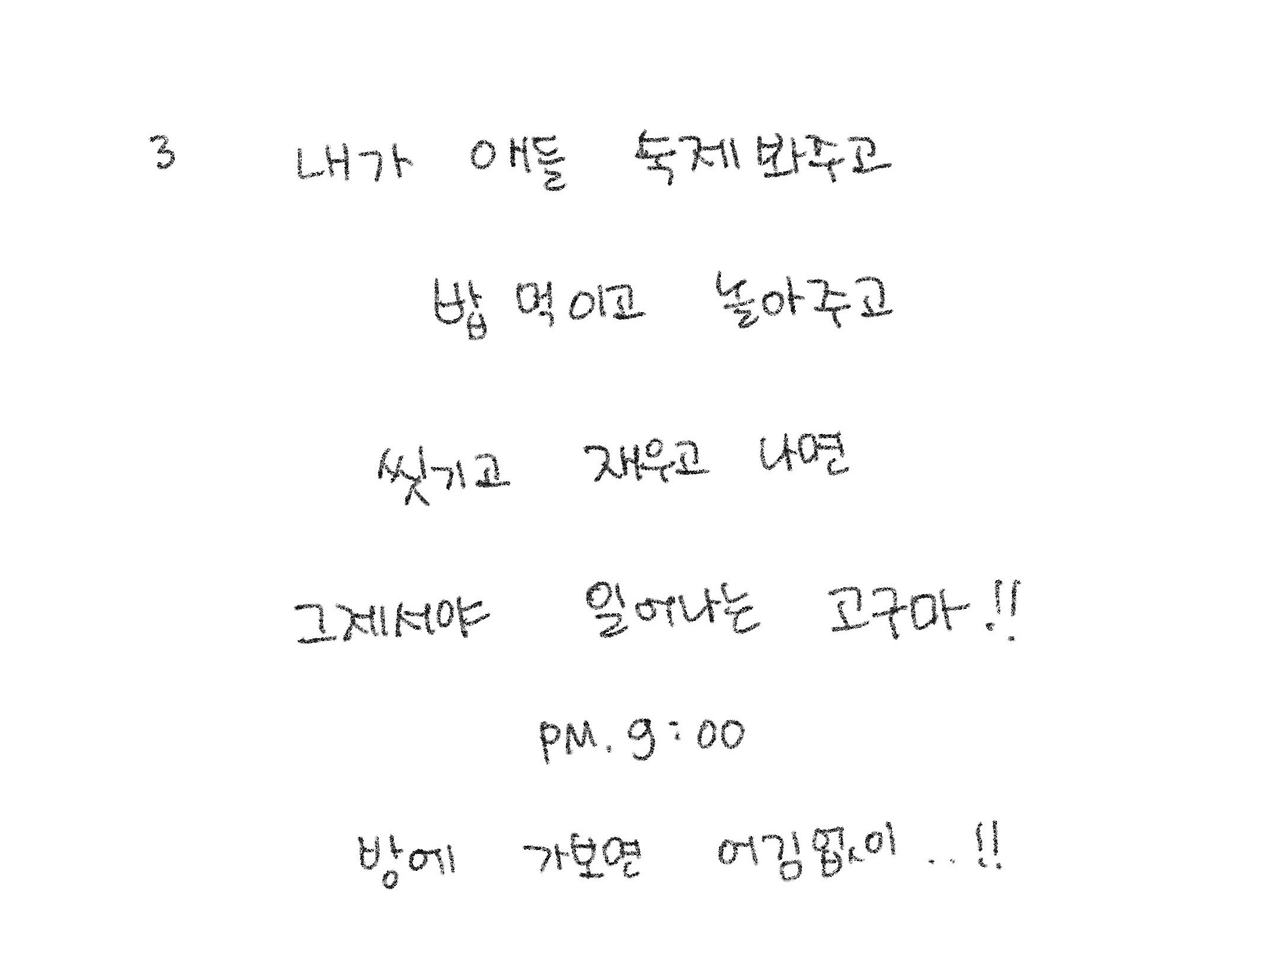 3 내가 애들 숙제봐주고
밥 먹이고 놀아주고
씻기고 재우고 나면
그제서야 일어나는 고구마!!
PM. 9:00
방에 가보면 어김없이..!!